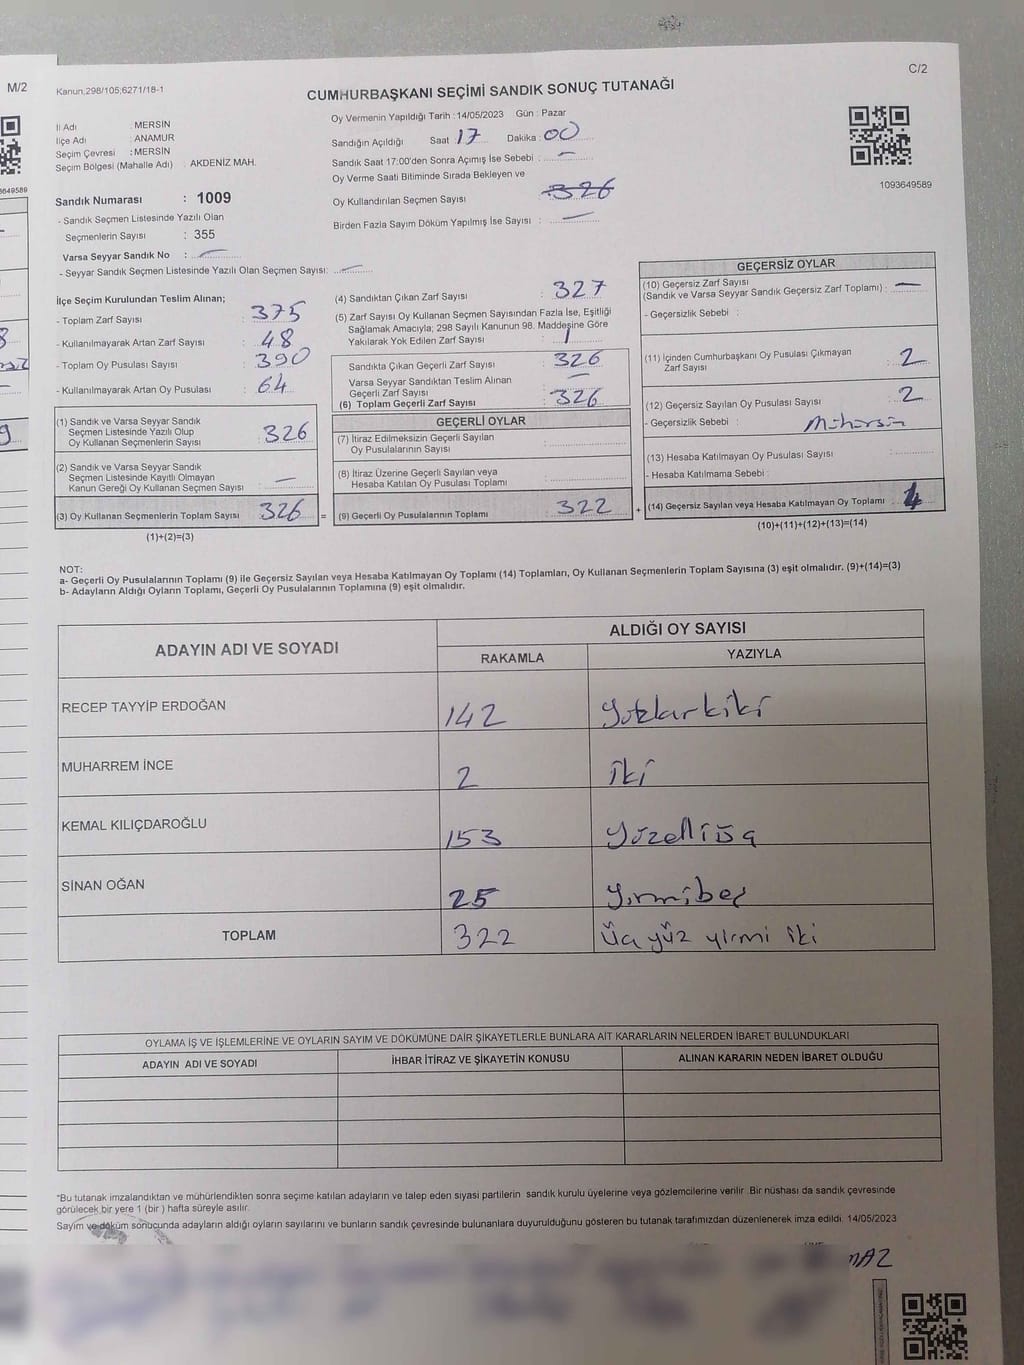 M/2
C/2
Kanun,298/105;6271/18-1
CUMHURBAŞKANI SEÇİMİ SANDIK SONUÇ TUTANAĞI
İl Adı : MERSİN
İlçe Adı : ANAMUR
Seçim Çevresi : MERSİN
Seçim Bölgesi (Mahalle Adı) : AKDENİZ MAH.
Sandık Numarası : 1009
- Sandık Seçmen Listesinde Yazılı Olan
Seçmenlerin Sayısı : 355
Varsa Seyyar Sandık No : —
- Seyyar Sandık Seçmen Listesinde Yazılı Olan Seçmen Sayısı: —
Oy Vermenin Yapıldığı Tarih : 14/05/2023 Gün : Pazar
Sandığın Açıldığı Saat 17 Dakika : 00
Sandık Saat 17:00'den Sonra Açımış İse Sebebi : —
Oy Verme Saati Bitiminde Sırada Bekleyen ve
Oy Kullandırılan Seçmen Sayısı 326
Birden Fazla Sayım Döküm Yapılmış İse Sayısı : —
1093649589
İlçe Seçim Kurulundan Teslim Alınan;
- Toplam Zarf Sayısı : 375
- Kullanılmayarak Artan Zarf Sayısı : 48
- Toplam Oy Pusulası Sayısı : 390
- Kullanılmayarak Artan Oy Pusulası : 64
(1) Sandık ve Varsa Seyyar Sandık
Seçmen Listesinde Yazılı Olup
Oy Kullanan Seçmenlerin Sayısı : 326
(2) Sandık ve Varsa Seyyar Sandık
Seçmen Listesinde Kayıtlı Olmayan
Kanun Gereği Oy Kullanan Seçmen Sayısı : —
(3) Oy Kullanan Seçmenlerin Toplam Sayısı : 326 =
(1)+(2)=(3)
(4) Sandıktan Çıkan Zarf Sayısı : 327
(5) Zarf Sayısı Oy Kullanan Seçmen Sayısından Fazla İse, Eşitliği
Sağlamak Amacıyla; 298 Sayılı Kanunun 98. Maddesine Göre
Yakılarak Yok Edilen Zarf Sayısı : 1
Sandıkta Çıkan Geçerli Zarf Sayısı : 326
Varsa Seyyar Sandıktan Teslim Alınan
Geçerli Zarf Sayısı : —
(6) Toplam Geçerli Zarf Sayısı : 326
GEÇERLİ OYLAR
(7) İtiraz Edilmeksizin Geçerli Sayılan
Oy Pusulalarının Sayısı :
(8) İtiraz Üzerine Geçerli Sayılan veya
Hesaba Katılan Oy Pusulası Toplamı :
(9) Geçerli Oy Pusulalarının Toplamı : 322 +
GEÇERSİZ OYLAR
(10) Geçersiz Zarf Sayısı
(Sandık ve Varsa Seyyar Sandık Geçersiz Zarf Toplamı) : —
- Geçersizlik Sebebi :
(11) İçinden Cumhurbaşkanı Oy Pusulası Çıkmayan
Zarf Sayısı : 2
(12) Geçersiz Sayılan Oy Pusulası Sayısı : 2
- Geçersizlik Sebebi : Mühürsün
(13) Hesaba Katılmayan Oy Pusulası Sayısı :
- Hesaba Katılmama Sebebi :
(14) Geçersiz Sayılan veya Hesaba Katılmayan Oy Toplamı : 4
(10)+(11)+(12)+(13)=(14)
NOT:
a- Geçerli Oy Pusulalarının Toplamı (9) ile Geçersiz Sayılan veya Hesaba Katılmayan Oy Toplamı (14) Toplamları, Oy Kullanan Seçmenlerin Toplam Sayısına (3) eşit olmalıdır. (9)+(14)=(3)
b- Adayların Aldığı Oyların Toplamı, Geçerli Oy Pusulalarının Toplamına (9) eşit olmalıdır.
ADAYIN ADI VE SOYADI ALDIĞI OY SAYISI
RAKAMLA YAZIYLA
RECEP TAYYİP ERDOĞAN 142 yüzkırkiki
MUHARREM İNCE 2 iki
KEMAL KILIÇDAROĞLU 153 yüzelliüç
SİNAN OĞAN 25 yirmibeş
TOPLAM 322 üç yüz yirmi iki
OYLAMA İŞ VE İŞLEMLERİNE VE OYLARIN SAYIM VE DÖKÜMÜNE DAİR ŞİKAYETLERLE BUNLARA AİT KARARLARIN NELERDEN İBARET BULUNDUKLARI
ADAYIN ADI VE SOYADI İHBAR İTİRAZ VE ŞİKAYETİN KONUSU ALINAN KARARIN NEDEN İBARET OLDUĞU
*Bu tutanak imzalandıktan ve mühürlendikten sonra seçime katılan adayların ve talep eden siyasi partilerin sandık kurulu üyelerine veya gözlemcilerine verilir. Bir nüshası da sandık çevresinde
görülecek bir yere 1 (bir ) hafta süreyle asılır.
Sayım ve döküm sonucunda adayların aldığı oyların sayılarını ve bunların sandık çevresinde bulunanlara duyurulduğunu gösteren bu tutanak tarafımızdan düzenlenerek imza edildi. 14/05/2023